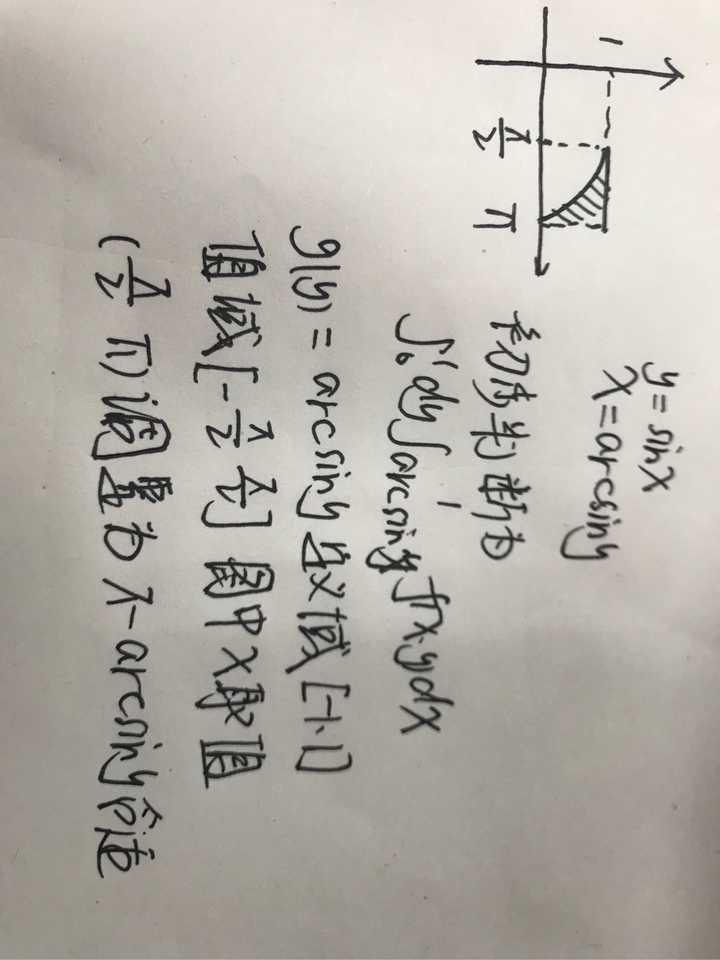 1
π/2 π
y = sinx
x = arcsiny
初步判断为
∫₀¹dy∫arcsiny¹ f(x,y)dx
g(y) = arcsiny 定义域[-1,1]
值域[-π/2 π/2] 图中x取值
(π/2 π) 调整为 π-arcsiny 合适